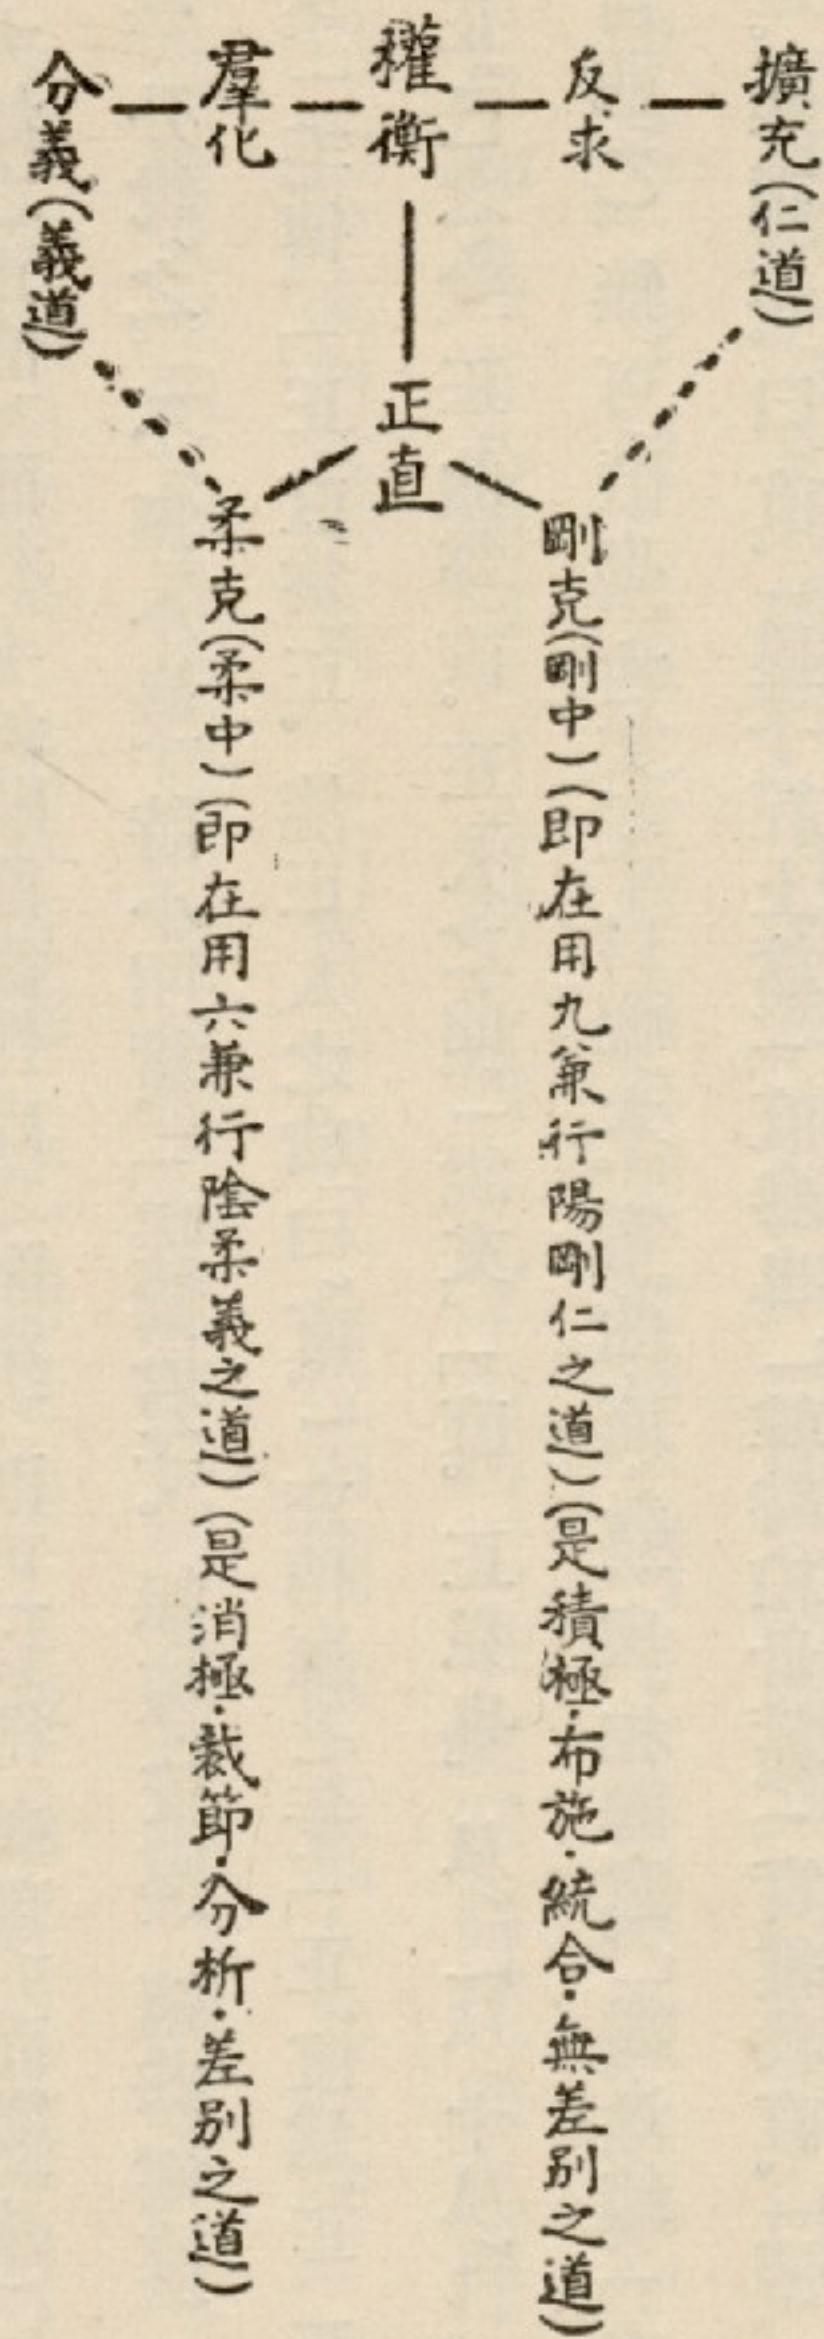 擴充(仁道)
反求
權衡
羣化
分義(義道)
正直
剛克(剛中)(即在用九兼行陽剛仁之道)(是積極·布施·統合·無差別之道)
柔克(柔中)(即在用六兼行陰柔義之道)(是消極·裁節·分析·差別之道)